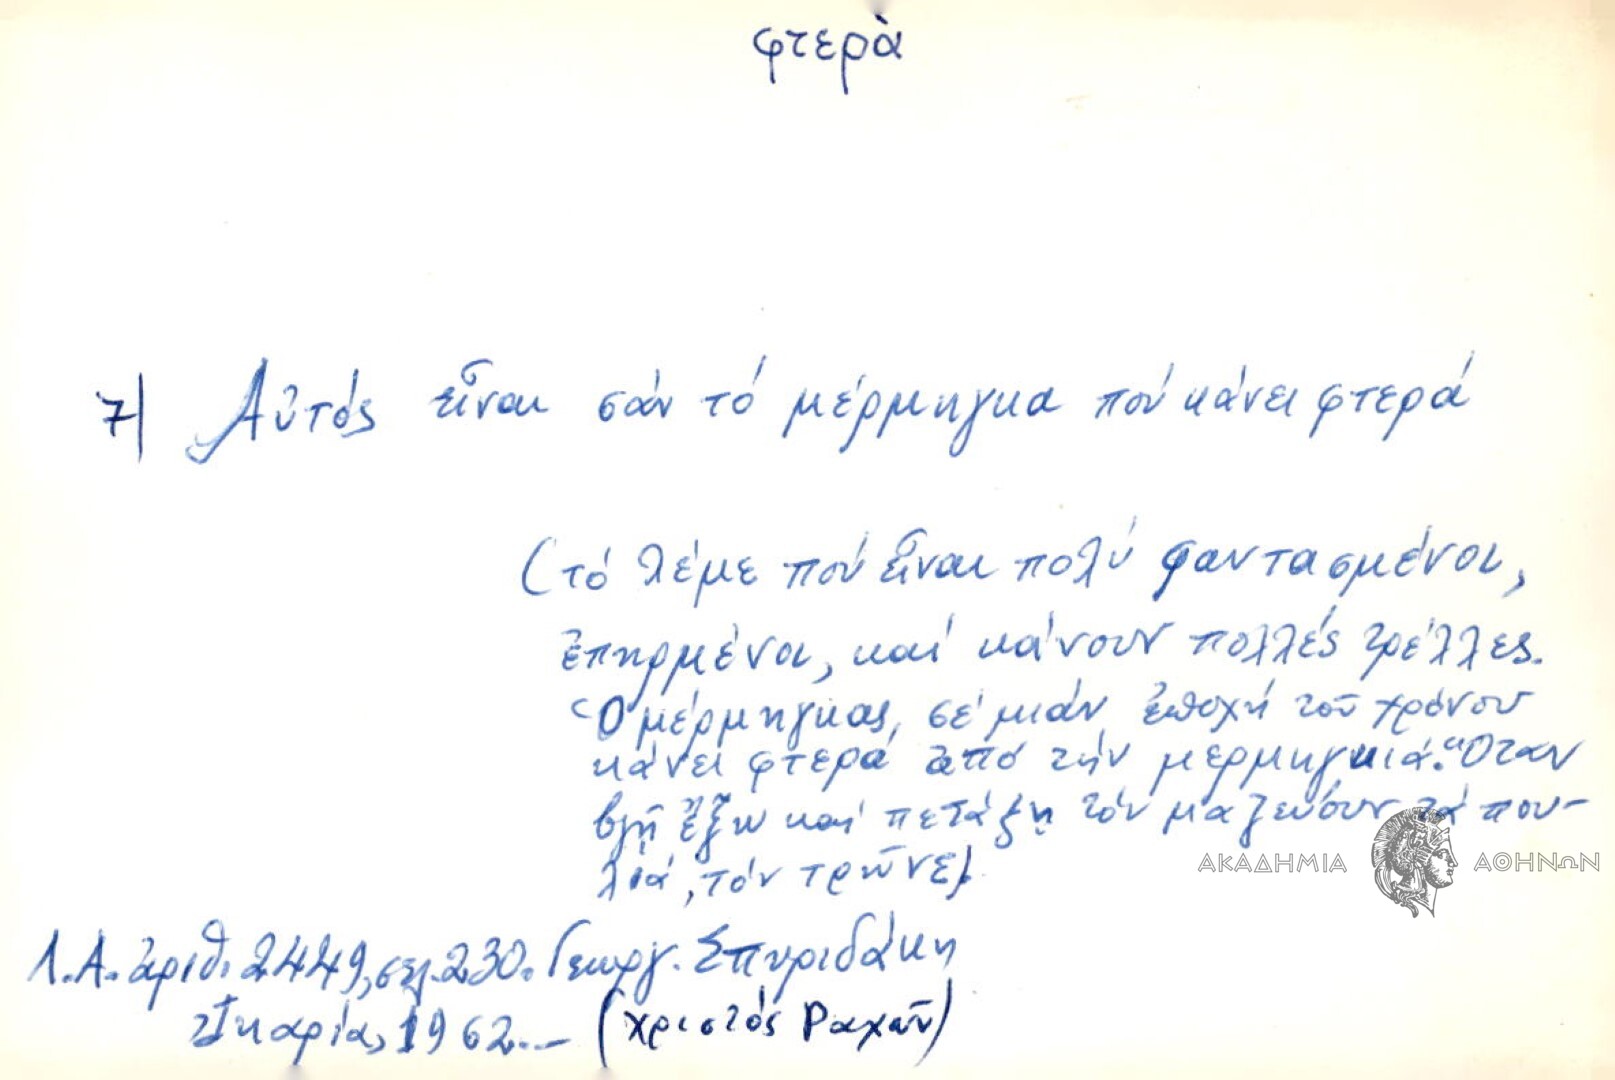 φτερὰ
7) Αὐτός εἶναι σάν τό μέρμηγκα πού κάνει φτερά
(τό λέμε πού εἶναι πολύ φαντασμένοι,
ἐπηρμένοι, καί κάνουν πολλές τρέλλες.
Ὁ μέρμηγκας, σέ μιάν ἐποχή τοῦ χρόνου
κάνει φτερά ἀπό τήν μερμηγκιά. Ὅταν
βγῆ ἔξω καί πετάξῃ τόν μαζεύουν τά που-
λιά, τόν τρῶνε).
ΑΚΑΔΗΜΙΑ ΑΘΗΝΩΝ
Λ.Α. ἀριθ. 2449, σελ. 230. Γεωργ. Σπυριδάκη
Ἰκαρία, 1962.- (Χριστός Ραχῶν)